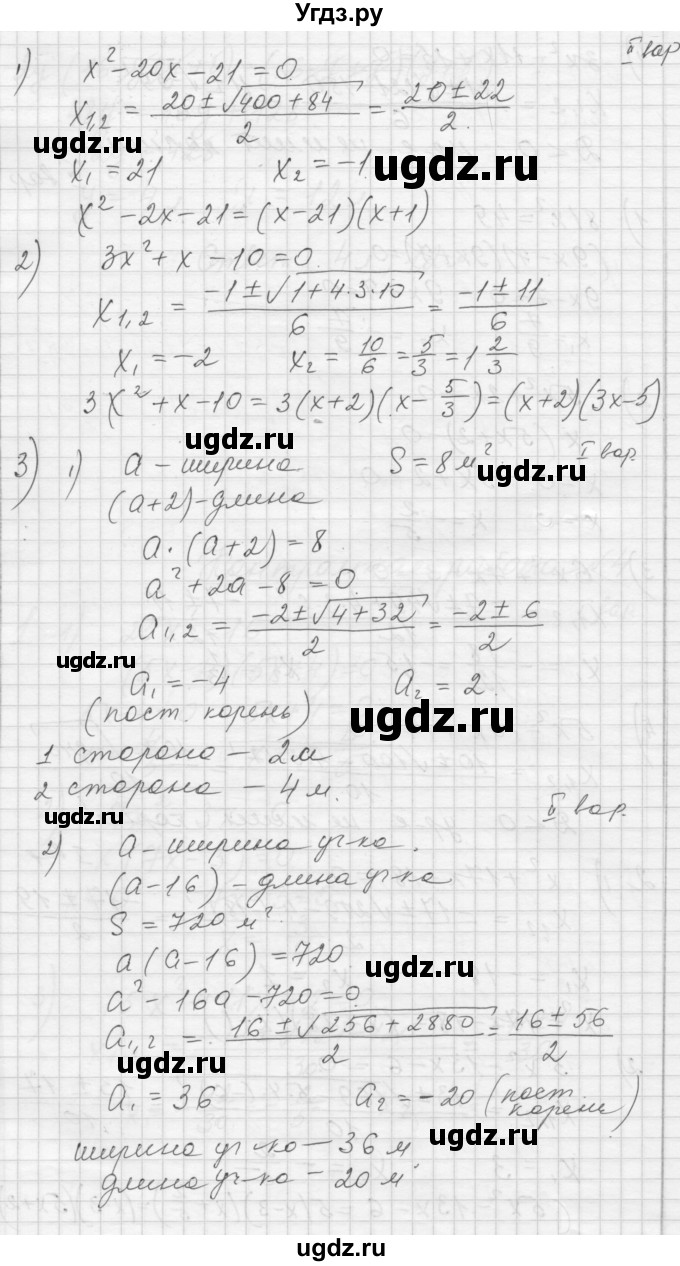 Угдз.ру
II вар
1) x² - 20x - 21 = 0
x₁,₂ = (20 ± √(400 + 84))/2 = (20 ± 22)/2
x₁ = 21 x₂ = -1
ugdz.ru
ugdz.ru
x² - 2x - 21 = (x - 21)(x + 1)
2) 3x² + x - 10 = 0
x₁,₂ = (-1 ± √(1 + 4·3·10))/6 = (-1 ± 11)/6
x₁ = -2 x₂ = 10/6 = 5/3 = 1 2/3
3x² + x - 10 = 3(x + 2)(x - 5/3) = (x + 2)(3x - 5)
ugdz.ru
3) 1) a - ширина S = 8 м² I вар.
ugdz.ru
(a + 2) - длина
a · (a + 2) = 8
a² + 2a - 8 = 0
a₁,₂ = (-2 ± √(4 + 32))/2 = (-2 ± 6)/2
ugdz.ru
a₁ = -4 a₂ = 2
(пост. корень)
ugdz.ru
1 сторона - 2м
2 сторона - 4 м.
ugdz.ru
II вар.
2) a - ширина уч-ка.
(a - 16) - длина уч-ка
S = 720 м².
a (a - 16) = 720
ugdz.ru
a² - 16a - 720 = 0
a₁,₂ = (16 ± √(256 + 2880))/2 = (16 ± 56)/2
ugdz.ru
a₁ = 36 a₂ = -20 (пост. корень)
ugdz.ru
ширина уч-ка - 36 м
длина уч-ка - 20 м
ugdz.ru